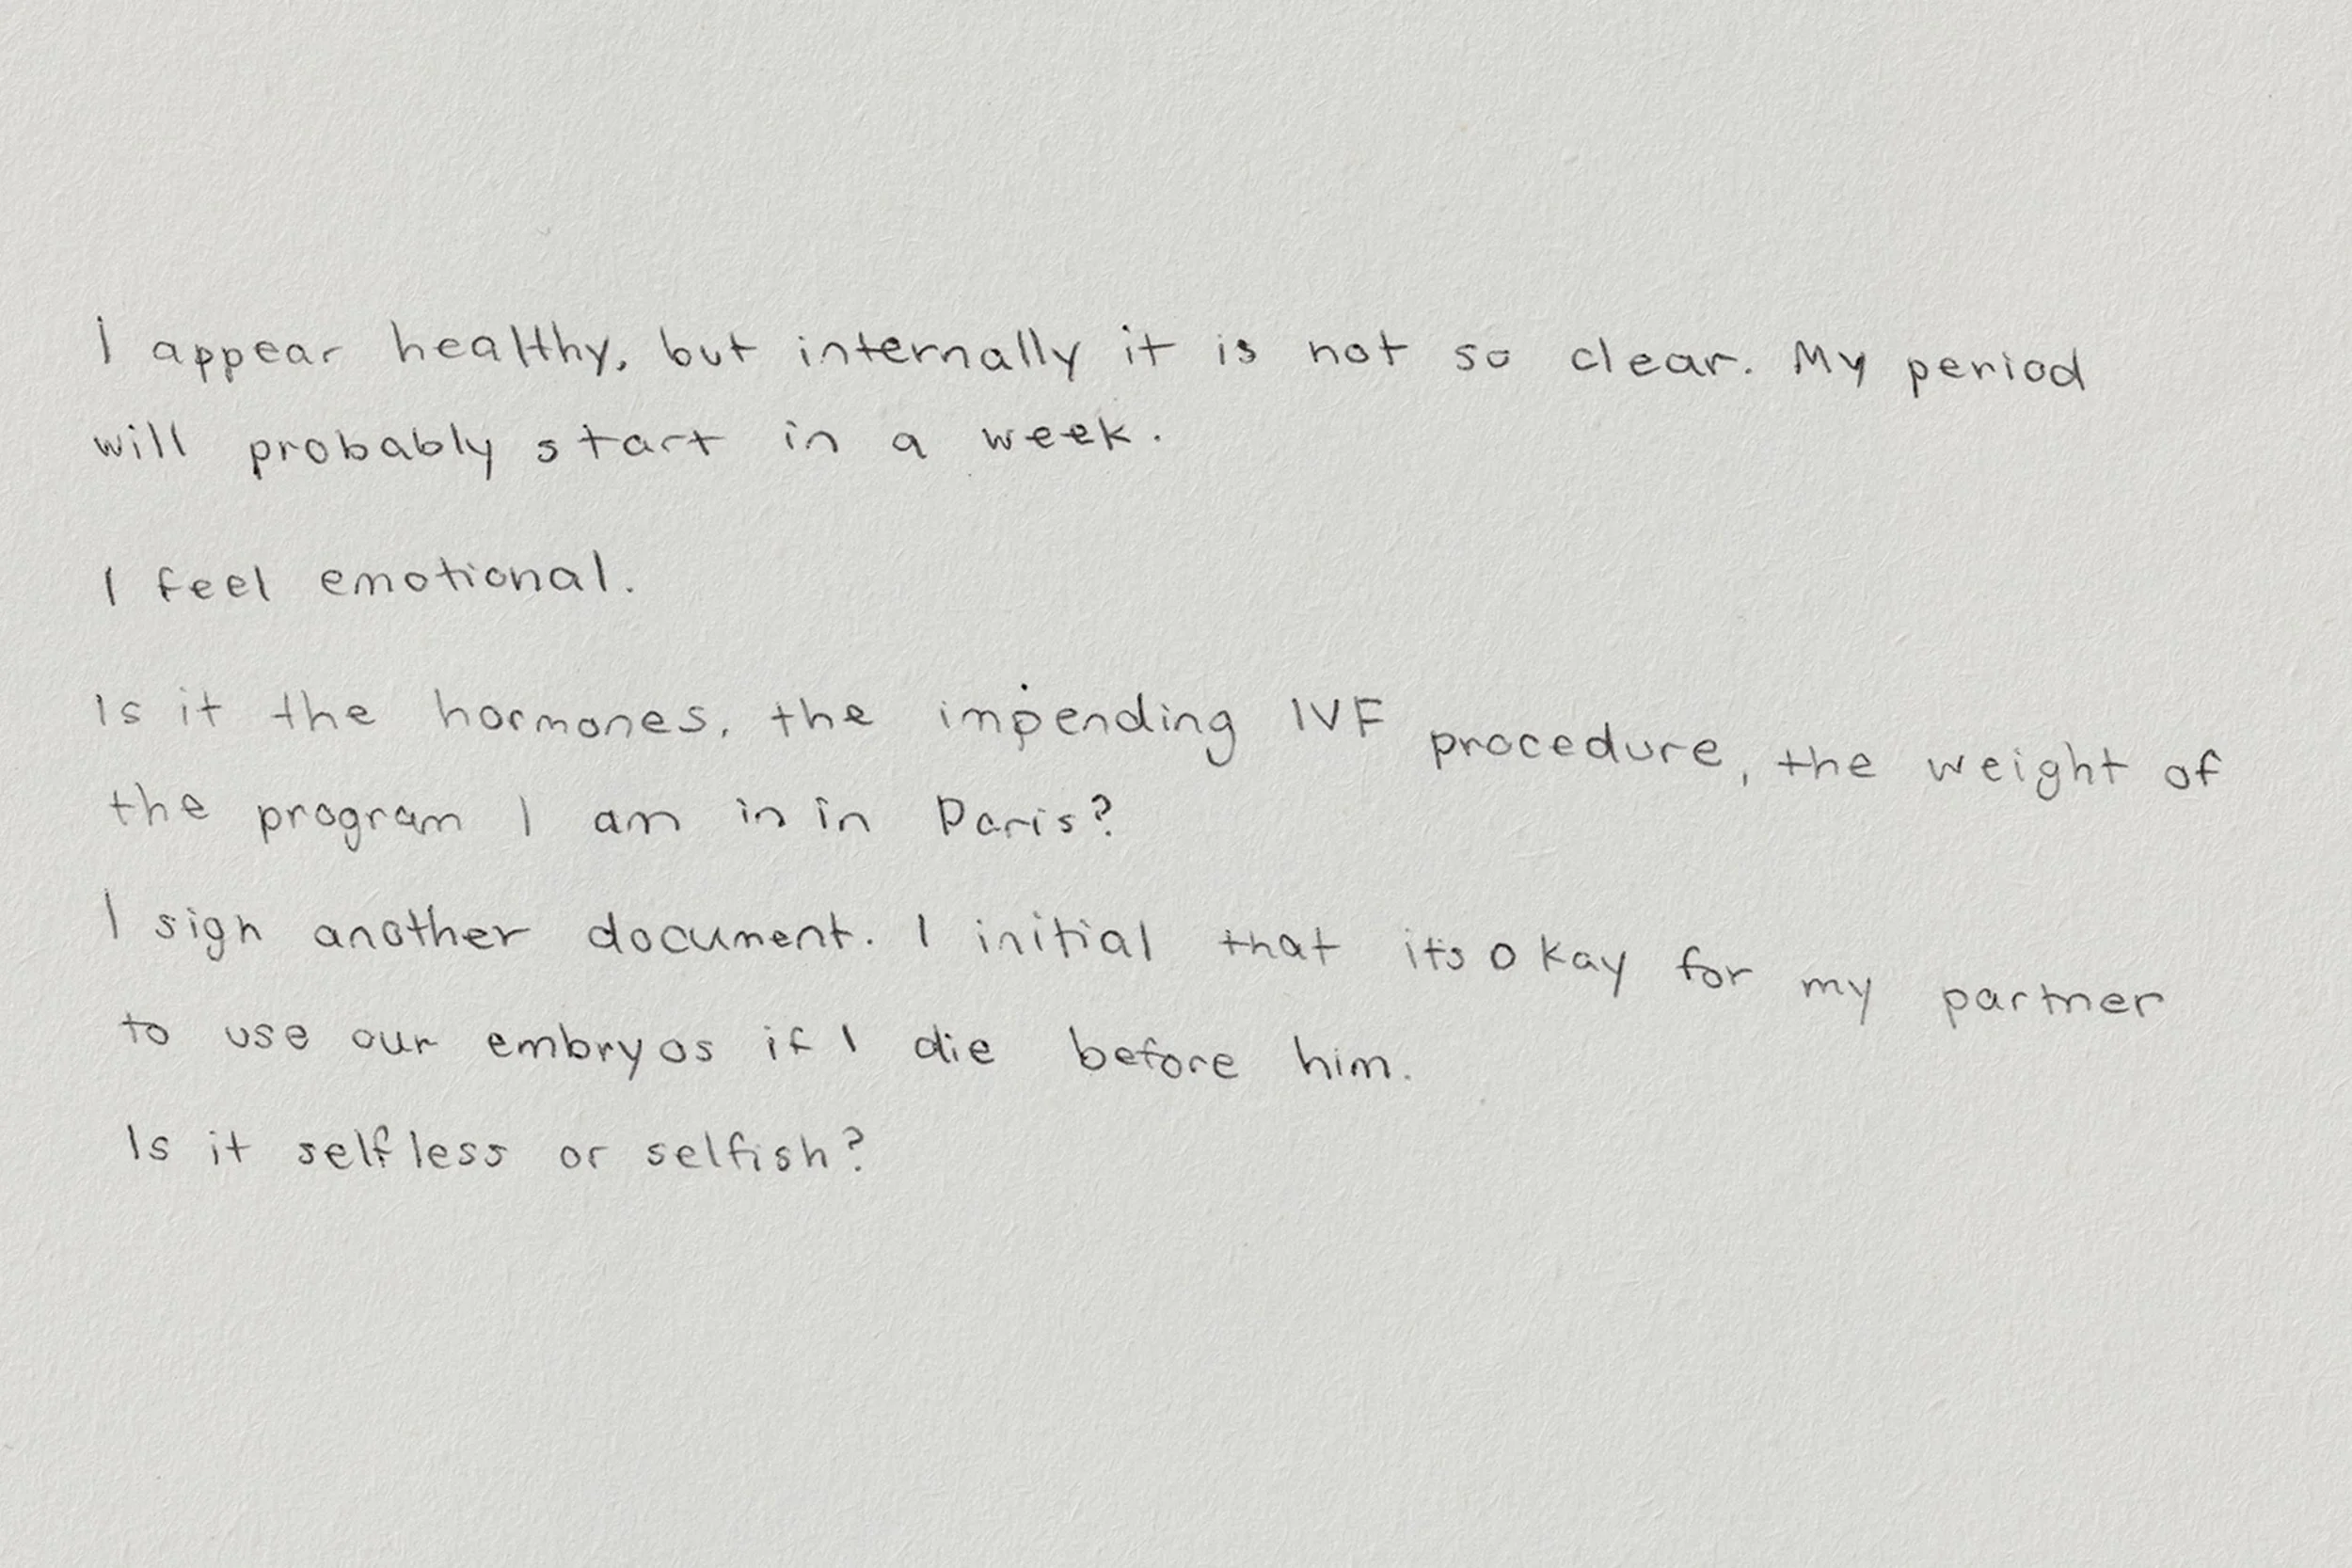 I appear healthy, but internally it is not so clear. My period
will probably start in a week.
I feel emotional.
Is it the hormones, the impending IVF procedure, the weight of
the program I am in in Paris?
I sign another document. I initial that its okay for my partner
to use our embryos if I die before him.
Is it selfless or selfish?